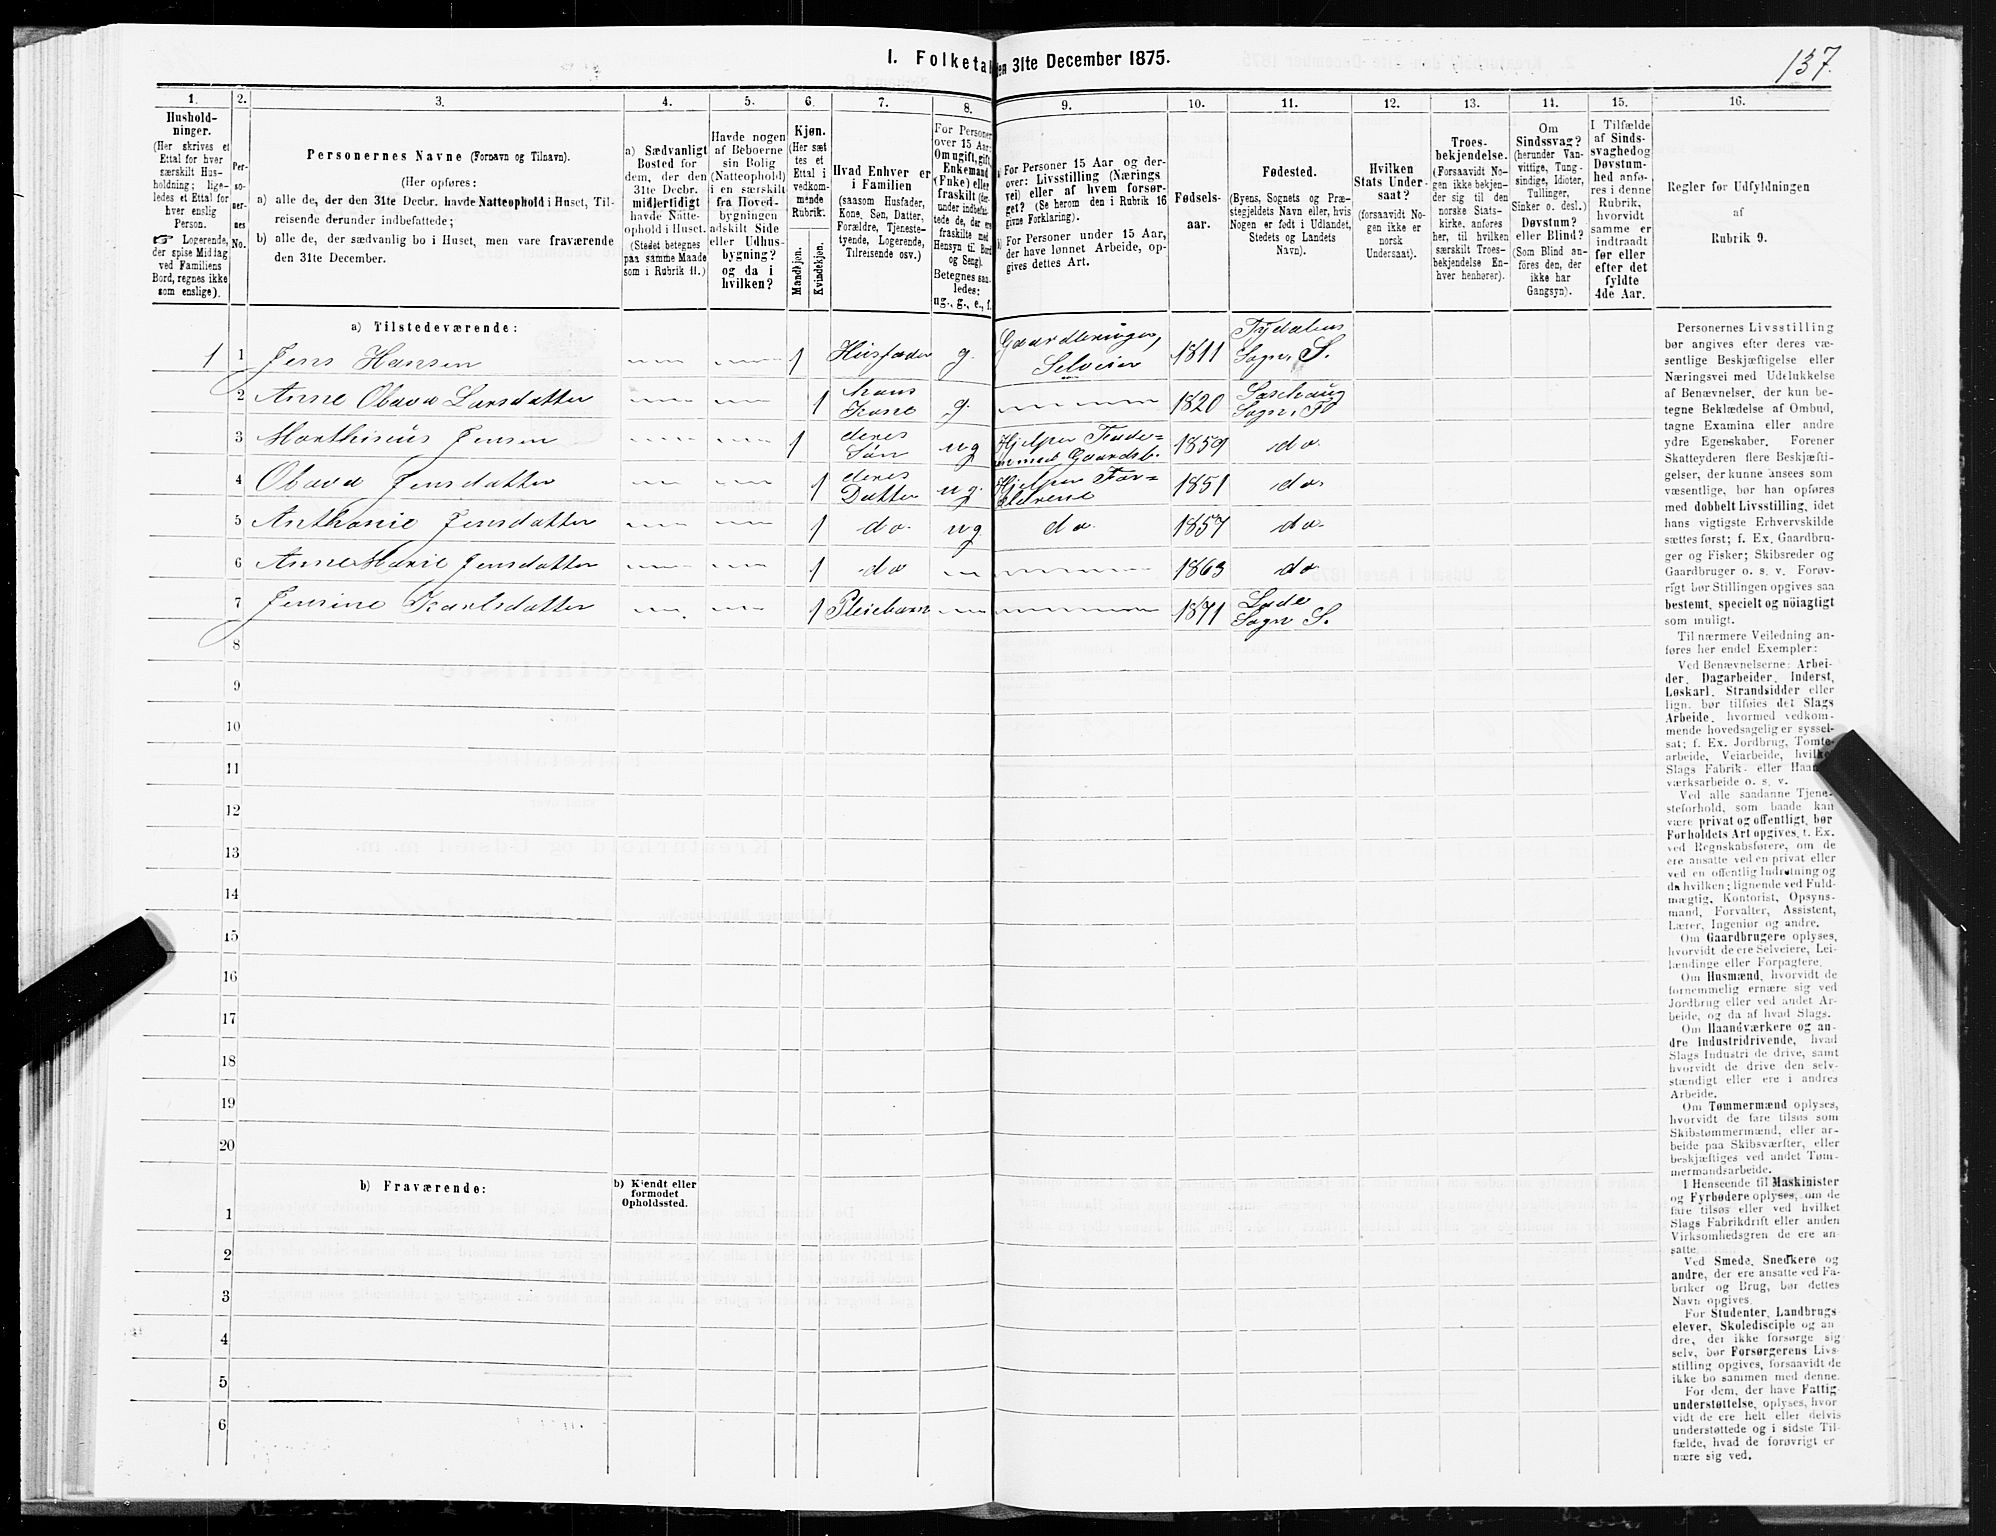 I. Folketa en 31te December 1875.
137.
1. 2. 3. 4. 5. 6. 7. 8. 9. 10. 11. 12. 13. 14. 15. 16.
Hushold-
ninger.
(Her skrives et
Ettal for hver
særskilt Hus-
holdning; lige-
ledes et Ettal for
hver enslig
Person.
☞ Logerende,
der spise Middag
ved Familiens
Bord, regnes ikke
som enslige).
Per-
so-
ner-
nes
No.
Personernes Navne (Fornavn og Tilnavn).
(Her opføres:
a) alle de, der den 31te Decbr. havde Natteophold i Huset, Til-
reisende derunder indbefattede;
b) alle de, der sædvanlig bo i Huset, men vare fraværende
den 31te December.
a) Sædvanligt
Bosted for
dem, der den
31te Decbr.
midlertidigt
havde Natte-
ophold i Huset.
(Stedet betegnes
paa samme Maade
som i Rubrik 11.)
Havde nogen
af Beboerne
sin Bolig
(Natteophold)
i en særskilt
fra Hoved-
bygningen
adskilt Side
eller Udhus-
bygning?
og da i
hvilken?
Kjøn.
(Her sæt
tes et
Ettal i
vedkom-
mende
Rubrik.
Mandkjøn.
Kvindekjøn.
Hvad Enhver er
i Familien
(saasom Husfader,
Kone, Søn, Datter,
Forældre, Tjeneste-
tyende, Logerende,
Tilreisende osv.)
For Personer
over 15 Aar:
Om ugift, gift,
Enkemand
(Enke) eller
fraskilt (der-
under indbefat-
tede de, der ere
fraskilte med
Hensyn til Bord
og Seng).
Betegnes saa-
ledes:
ug., g., e., f.
a) For Personer 15 Aar og der-
over: Livsstilling (Nærings
vei) eller af hvem forsør-
get? (Se herom den i Rubrik 16
givne Forklaring).
b) For Personer under 15 Aar,
der have lønnet Arbeide, op-
gives dettes Art.
Fødsels-
aar.
Fødested.
(Byens, Sognets og Præ-
stegjeldets Navn eller, hvis
Nogen er født i Udlandet,
Stedets og Landets
Navn).
Hvilken
Stats Under-
saat?
(forsaavidt No-
gen ikke er
norsk
Undersaat).
Troes-
bekjendelse.
(Forsaavidt No-
gen ikke bekjen-
der sig til den
norske Stats-
kirke, anføres
her, til hvilken
særskilt Troes-
bekjendelse En-
hver henhører).
Om
Sindssvag?
(herunder Van-
vittige, Tung-
sindige, Idioter,
Tullinger,
Sinker o. desl.)
Døvstum?
eller Blind?
(Som Blind an-
føres den, der
ikke har
Gangsyn).
I Tilfælde
af Sinds-
svaghed og
Døvstum-
hed anfø-
res i denne
Rubrik,
hvorvidt
samme er
indtraadt
før eller
efter det
fyldte
4de Aar.
Regler for Udfyldningen
af
Rubrik 9.
a) Tilstedeværende:
1 1 Jens Hansen 1 Husfader g. Gaardbruger, Selveier 1811 Tydalens Sogn, S.
2 Anne Obava Larsdatter 1 hans Kone g. 1820 Saxhaug Sogn,
3 Marthinus Jensen 1 deres Søn ug Hjelper Fade= 1859 do
4 Obava Jensdatter 1 deres Datter ug. Hjelper For= ældrene 1851 do.
5 Anthonie Jensdatter 1 do. ug do. 1857 do.
6 Anne Marie Jensdatter 1 do 1863 do
7 Jensine Karlsdatter 1 Pleiebarn 1871 Lade Sogn S.
8
9
10
11
12
13
14
15
16
17
18
19
20
b) Fraværende:
b) Kjendt eller
formodet
Opholdssted.
1
2
3
4
5
6
Personernes Livsstilling
bør angives efter deres væ-
sentlige Beskjæftigelse eller
Næringsvei med Udelukkelse
af Benævnelser, der kun be-
tegne Beklædelse af Ombud,
tagne Examina eller andre
ydre Egenskaber. Forener
Skatteyderen flere Beskjæfti-
gelser, der kunne ansees som
væsentlige, bør han opføres
med dobbelt Livsstilling, idet
hans vigtigste Erhvervskilde
sættes først; f. Ex. Gaardbru-
ger og Fisker; Skibsreder og
Gaardbruger o. s. v. Forøv-
rigt bør Stillingen opgives saa
bestemt, specielt og nöiagtigt
som muligt.
Til nærmere Veiledning an-
føres her endel Exempler:
Ved Benævnelserne: Arbei-
der, Dagarbeider, Inderst,
Løskarl, Strandsidder eller
lign. bør tilføies det Slags
Arbeide, hvormed vedkom-
mende hovedsagelig er syssel-
sat; f. Ex. Jordbrug, Tomte-
arbeide, Veiarbeide, hvilke
Slags Fabrik- eller Haand-
værksarbeide o. s. v.
Ved alle saadanne Tjene-
steforhold, som baade kan
være privat og offentligt, bør
Forholdets Art opgives, t. Ex.
ved Regnskabsførere, om de
ere ansatte ved en privat eller
ved en offentlig Indretning og
da hvilken; lignende ved Fuld-
mægtig, Kontorist, Opsyns-
mand, Forvalter, Assistent,
Lærer, Ingeniør og andre.
Om Gaardbrugere oplyses,
hvorvidt de ere Selveiere, Lei-
lændinge eller Forpagtere.
Om Husmænd, hvorvidt de
fornemmelig ernære sig ved
Jordbrug eller ved andet Ar-
beide, og da af hvad Slags.
Om Haandværkere og an-
dre Industridrivende, hvad
Slags Industri de drive, samt
hvorvidt de drive den selv-
stændigt eller ere i andres
Arbeide.
Om Tømmermænd oplyses,
hvorvidt de fare tilsøs som
Skibstømmermænd, eller ar-
beide paa Skibsværfter, eller
beskjæftiges ved andet Tøm-
mermandsarbeide.
I Henseende til Maskinister
og Fyrbødere oplyses, om de
fare tilsøs eller ved hvilket
Slags Fabrikdrift eller anden
Virksomhedsgren de ere an-
satte.
Ved Smede, Snedkere og
andre, der ere ansatte ved Fa-
briker og Brug, bør dettes
Navn opgives.
For Studenter, Landbrugs-
elever, Skoledisciple og an-
dre, der ikke forsørge sig
selv, bør Forsørgerens Livs-
stilling opgives, forsaavidt de
ikke bo sammen med denne.
For dem, der have Fattig-
understøttelse, oplyses, hvor
vidt de ere helt eller delvis
understøttede og i sidste Til-
fælde, hvad de forøvrigt er
nære sig ved.